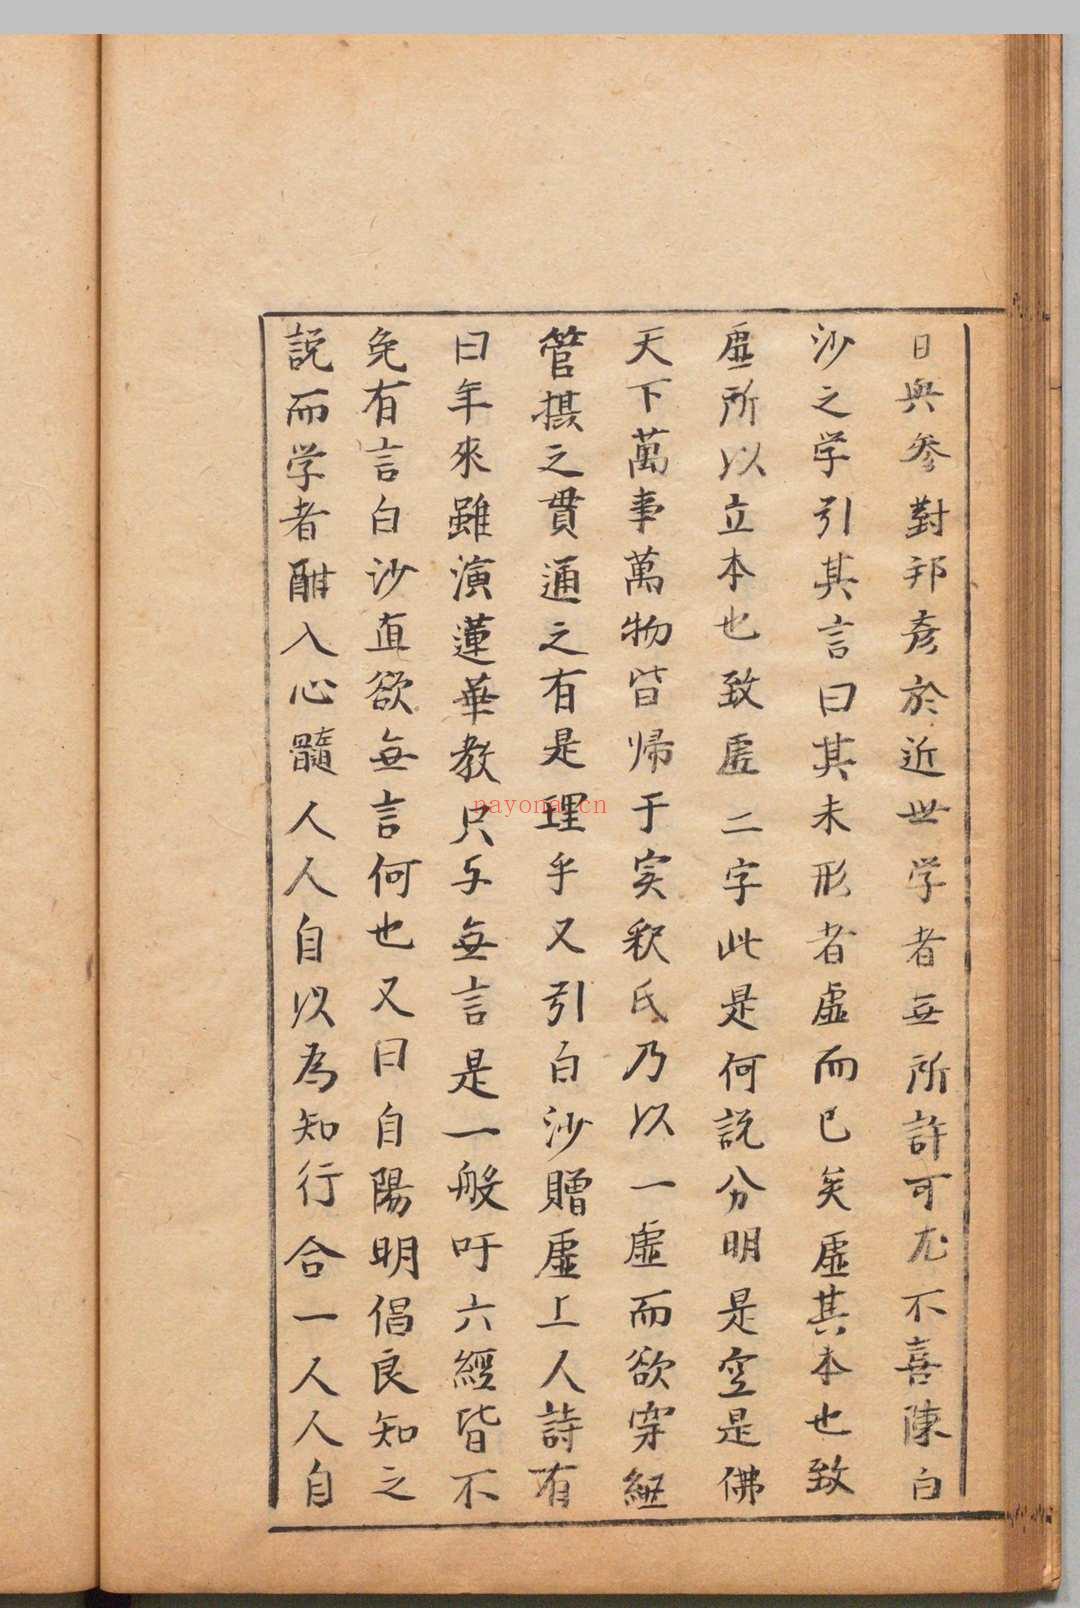 日與參對邦彥於近世学者無所許可尤不喜陳白
沙之学引其言曰其未形者虛而已矣虛其本也致
虛所以立本也致虛二字此是何說分明是空是佛
天下萬事萬物皆帰于实釈氏乃以一虛而欲穿紐
管攝之貫通之有是理乎又引白沙贈虛上人詩有
曰年來雖演蓮華教只与無言是一般吁六經皆不
免有言白沙直欲無言何也又曰自陽明倡良知之
説而学者酣入心髓人人自以為知行合一人人自
nayona.cn